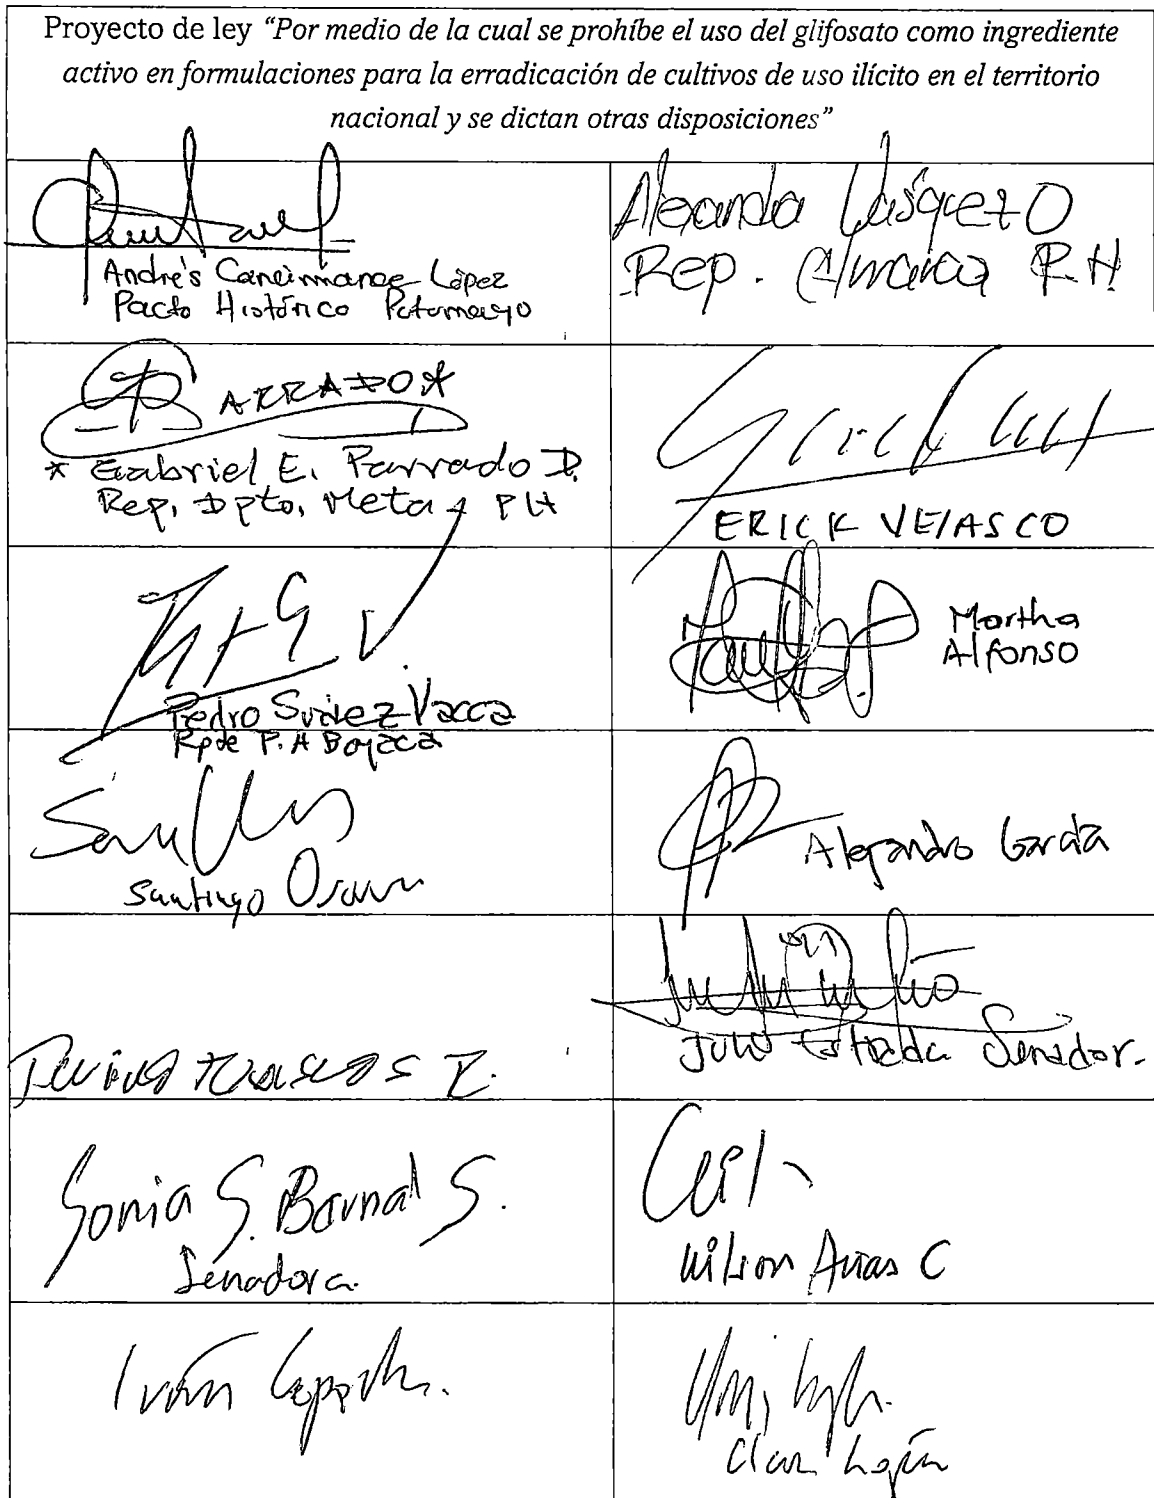 Proyecto de ley "Por medio de la cual se prohíbe el uso del glifosato como ingrediente
activo en formulaciones para la erradicación de cultivos de uso ilícito en el territorio
nacional y se dictan otras disposiciones"
Andrés Cancimance López
Pacto Histórico Putumayo
Alexandra Vásquez O
Rep. C/marca P.H
PARRADO*
* Gabriel E. Parrado D.
Rep. Dpto. Meta PH
ERICK VELASCO
Pedro Suárez Vacca
Rpte P.H Boyacá
Martha
Alfonso
Santiago Osorio
Alejandro García
Julio Estrada Senador.
Sonia S. Bernal S.
Senadora.
Wilson Arias C
Iván Cepeda
Clara López